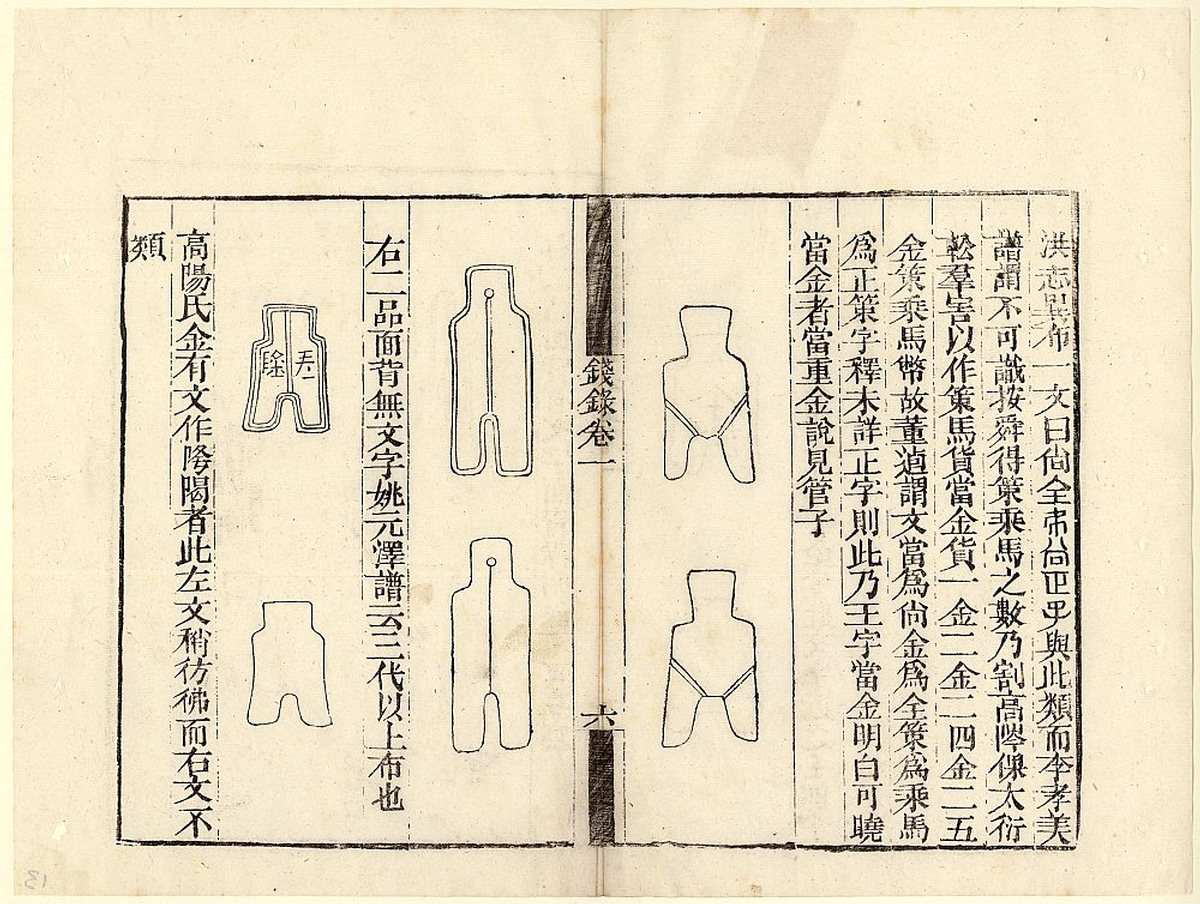 洪志異布一文曰尙全帀尙正子與此類而李孝美
譜謂不可識按舜得策乘馬之數乃割高陵保太衍
轂羣害以作策馬貨當金貨一金二金二四金二五
金策乘馬幣故董逌謂文當爲尙金爲全策爲乘馬
爲正策字釋未詳正字則此乃王字當金明白可曉
當金者當重金說見管子
錢錄卷一
六
右二品面背無文字姚元澤譜云三代以上布也
高陽氏金有文作降陽者此左文稍彷彿而右文不
類